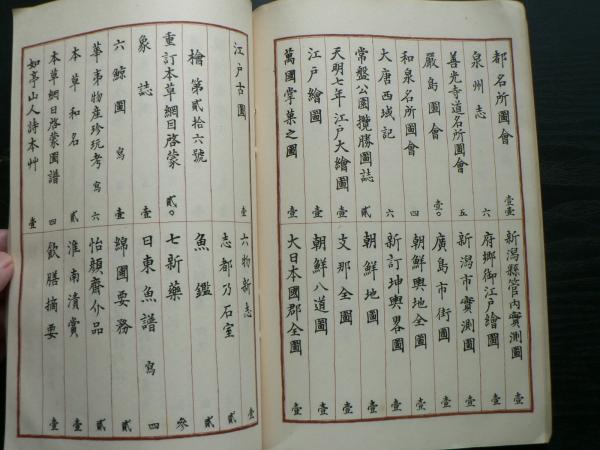 都名所圖會 壹壹
泉州志 六
善光寺道名所圖會 五
嚴島圖會 壹〇
和泉名所圖會 四
大唐西域記 六
常盤公園攬勝圖誌 貳
天明七年江戸大繪圖 壹
江戸繪圖 壹
萬國掌菓之圖 壹
新潟縣管内實測圖 壹
府郷御江戸繪圖 壹
新潟市實測圖 壹
廣島市街圖 壹
朝鮮輿地全圖 壹
新訂坤輿畧圖 壹
朝鮮地圖 壹
支那全圖 壹
朝鮮八道圖 壹
大日本國郡全圖 壹
江戸古圖 壹
檜第貳拾六號
重訂本草綱目啓蒙 貳〇
象誌 壹
六鯨圖 寫 壹
華夷物産珍玩考 寫 六
本草和名 貳
本草綱目啓蒙圖譜 四
如亭山人詩本艸 壹
六物新志 壹
志都乃石室 貳
魚鑑 貳
七新藥 參
日東魚譜 寫 四
綿圃要務 貳
怡顔齋介品 貳
淮南清賞 壹
飲膳摘要 壹